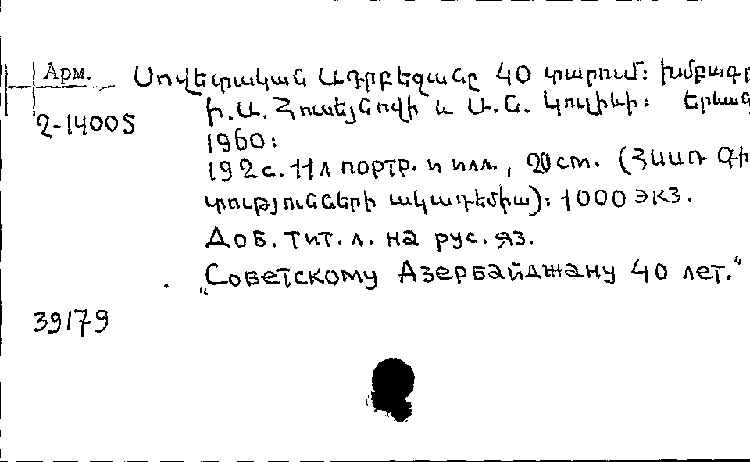 Арм. Սովետական Ադրբեջանը 40 տարում: Խմբագր
2-14005 Ի.Ա. Հուսեյնովի և Ա.Ն. Կուլիևի: Երևան
1960:
192 с. 11 л портр. и илл., 20 cm. (ՀՍՍՌ Գի
տությունների ակադեմիա): 1000 экз.
Доб. тит. л. на рус. яз.
„Советскому Азербайджану 40 лет.“
39179